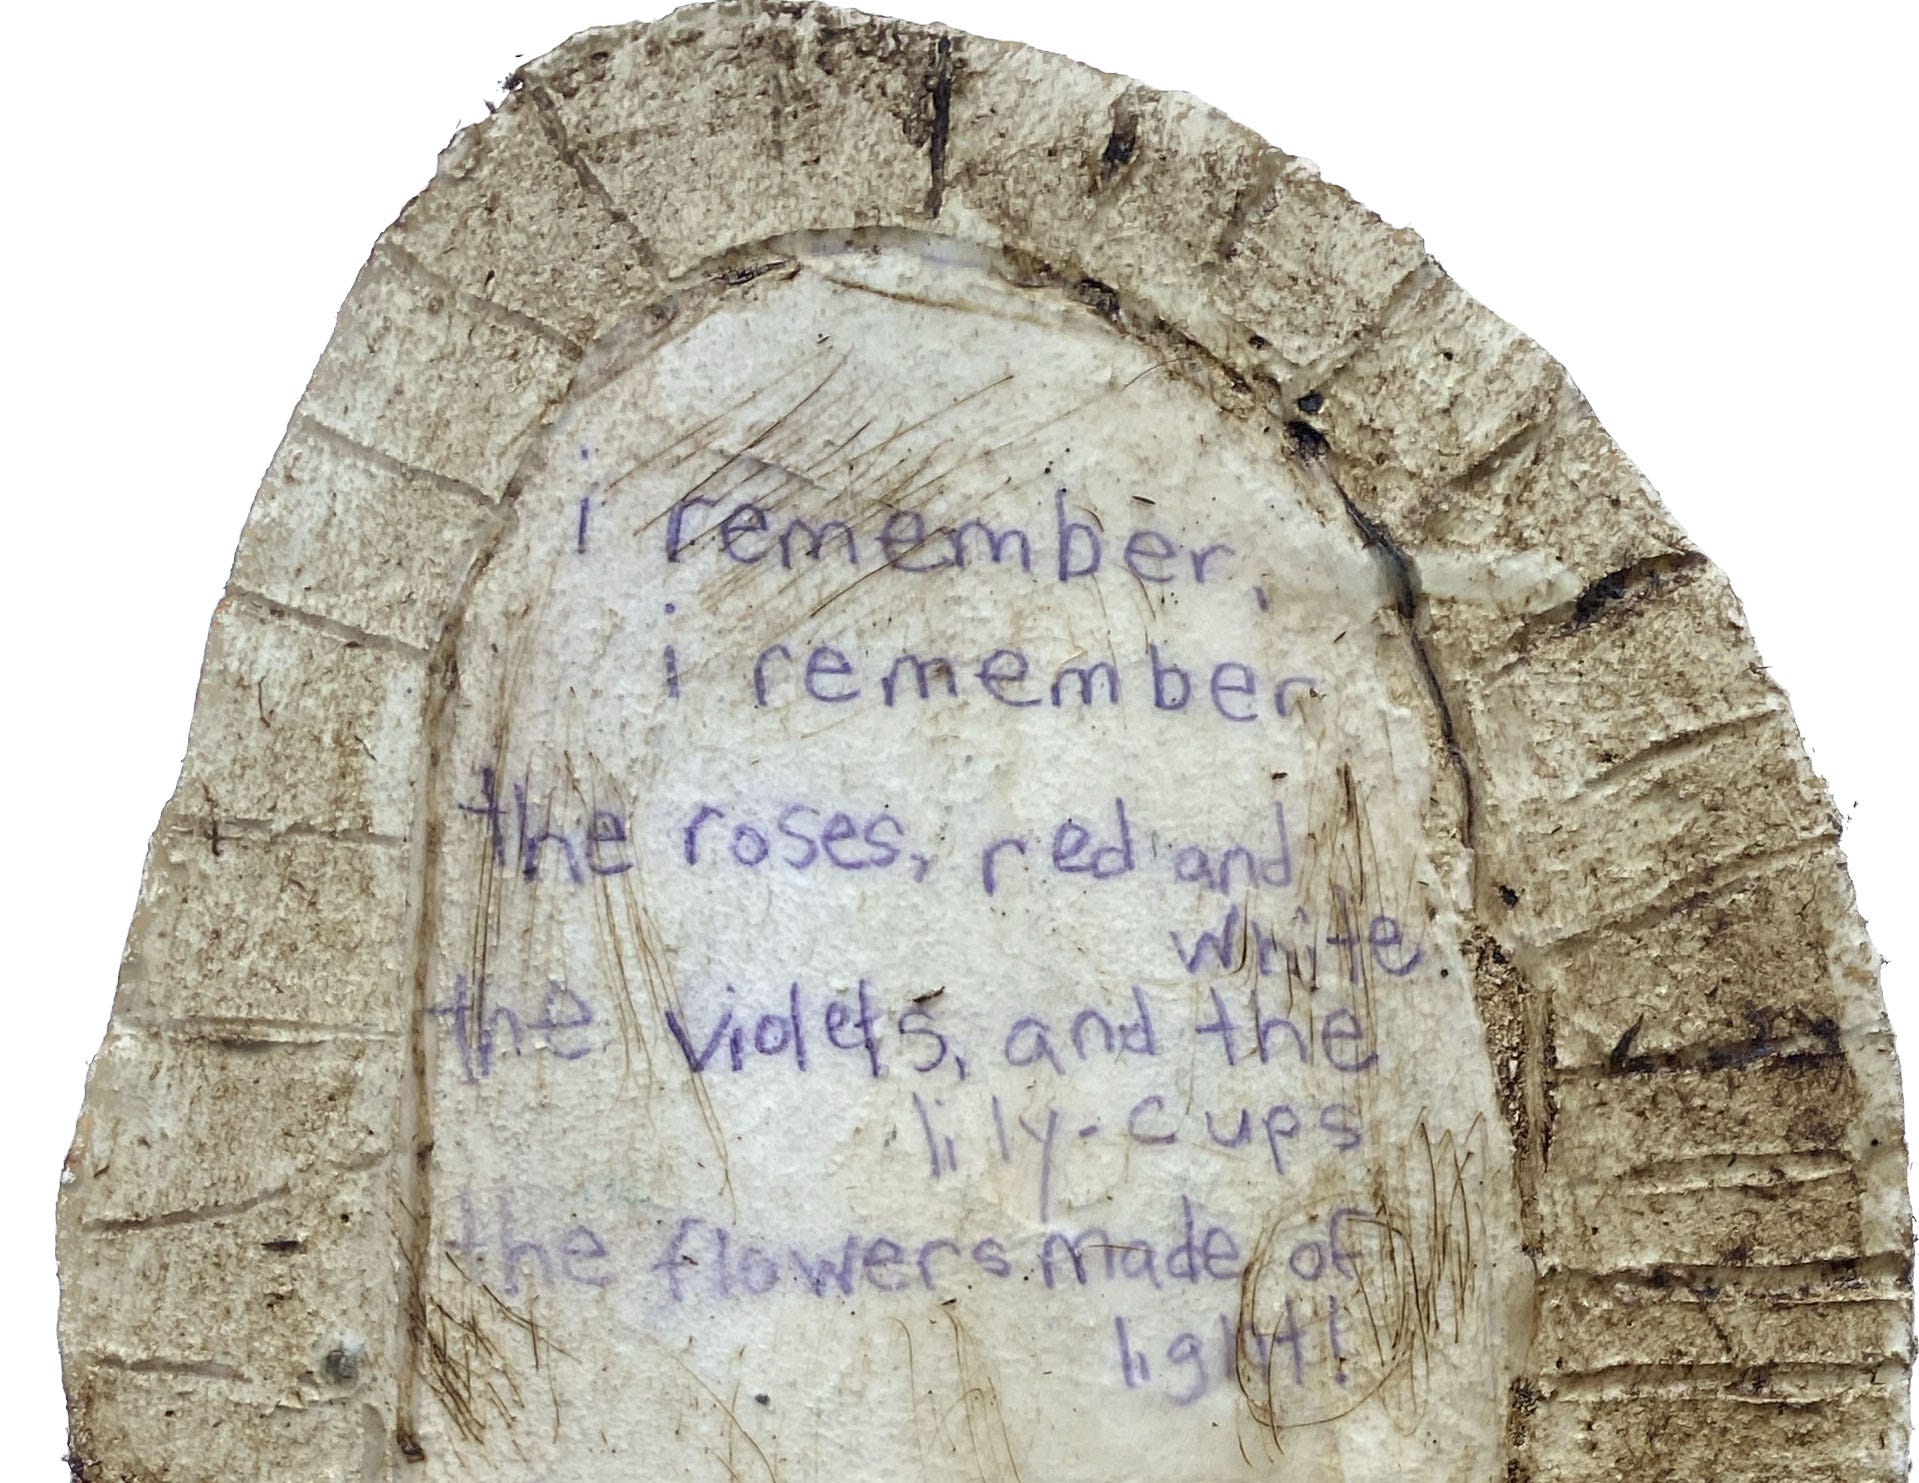 i remember,
i remember
the roses, red and
white
the violets, and the
lily-cups
the flowers made of
light!